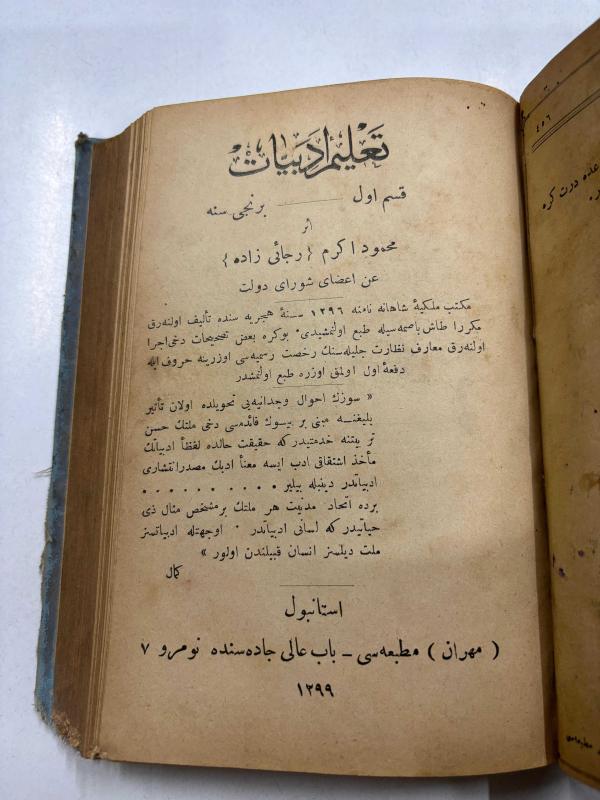 تعلیم ادبیات
قسم اول — برنجی سنه
اثر
محمود اکرم { رجائی زاده }
عن اعضای شورای دولت
مکتب ملکیهٔ شاهانه نامنه ١٢٩٦ سنهٔ هجریه سنده تألیف اولنه‌رق
مکررا طاش باصمه‌سیله طبع اولنمشیدی . بوکره بعض تصحیحات دخی اجرا
اولنه‌رق معارف نظارت جلیله‌سنك رخصت رسمیه‌سی اوزرینه حروف ایله
دفعهٔ اول اولمق اوزره طبع اولنمشدر
« سوزك احوال وجدانیه‌یی تحویلده اولان تأثیر
بلیغنه مبنی بر بیوك فائده‌سی دخی ملتك حسن
تربیتنه خدمتیدر که حقیقت حالده لفظاً ادبیاتك
مأخذ اشتقاقی ادب ایسه معناً ادبك مصدر انتشاری
ادبیاتدر دینیله بیلیر . . . . . . . . . .
برده اتحاد مدنیت هر ملتك بر مشخص مثال ذی
حیاتیدر که لسانی ادبیاتدر . اوجهتله ادبیاتسز
ملت دیلسز انسان قبیلندن اولور »
کمال
استانبول
( مهران ) مطبعه‌سی – باب عالی جاده‌سنده نومرو ٧
١٢٩٩
٤٥٦